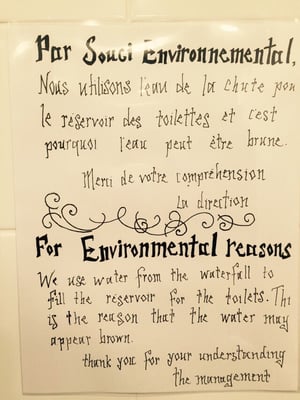 Par Souci Environnemental,
Nous utilisons l'eau de la chute pou
le réservoir des toilettes et c'est
pourquoi l'eau peut être brune.
Merci de votre compréhension
La direction
For Environmental reasons
We use water from the waterfall to
fill the reservoir for the toilets. Thi
is the reason that the water may
appear brown.
thank you for your understanding
the management